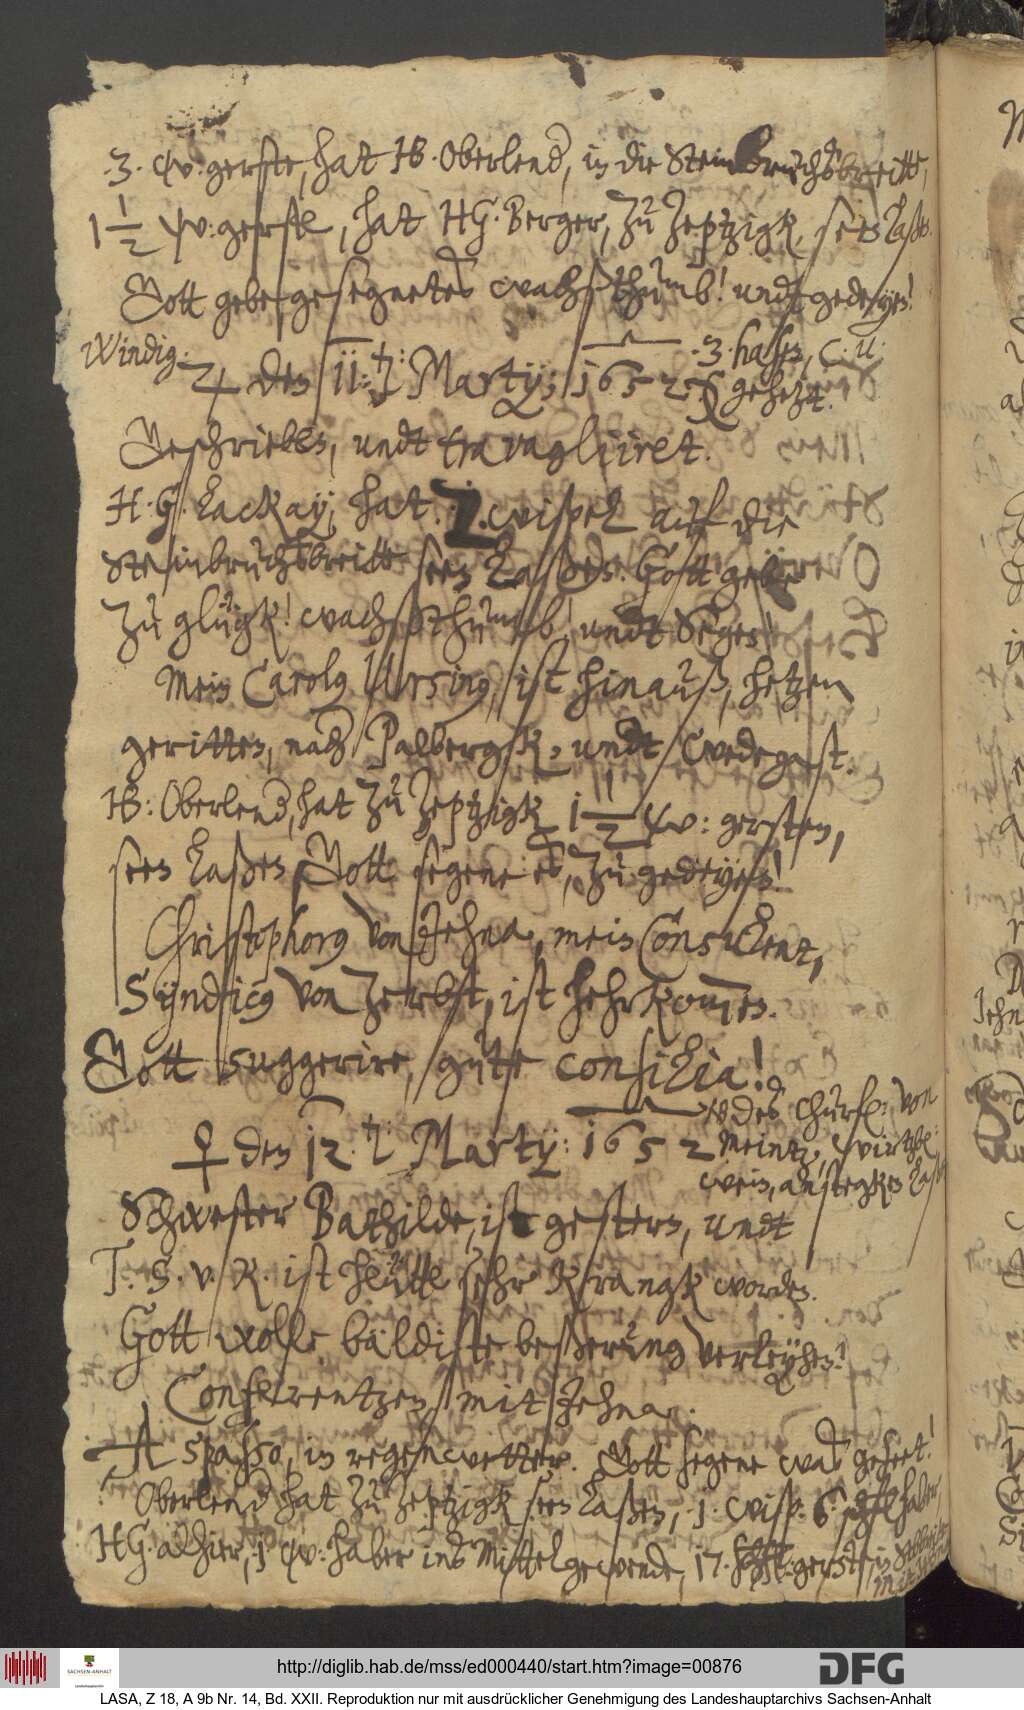 .3. W: gerste, hat HB. Oberlend, in die Steinbruchsbreitte,
1 1/2 W: gerste, hat HG. Berger, zu Zeptzigk, seen laßen.
Gott gebe gesegnetes wachßthumb! undt gedeyen!
Windig.
♃ den 11.ten: Martij: 1652
.3. hasen, C. U. gehetzt.
Geschrieben, undt travagliiret.
H. G. Lackay, hat .1. wispel auf die
Steinbruchsbreitte seen laßen. Gott gebe
zu glügk! wachßthumb! undt Segen!
Mein Carolus Ursinus, ist hinauß, hetzen
geritten, nach Palbergk, undt Wedegast.
HB: Oberlend, hat zu Zeptzigk 1 1/2 W: gersten,
seen laßen, Gott segene es, zu gedeyen!
Christophorus von Jehna, mein Consulent,
Syndicus von Zerbst, ist hehrkommen.
Gott suggerire, gute consilia!
♀ den 12.ten: Martij: 1652
des Churf: von Meintz, Wirtzb:
wein, anstegken laßen
Schwester Bathilde, ist gestern, undt
T. S. v. R. ist heütte sehr krangk worden.
Gott wolle baldiste beßerung verleyhen!
Conferentzen, mit Jehna.
A spasso, in regenwetter. Gott segene was gehet!
Oberlend hat zu Zeptzigk seen laßen, .1. wisp. 6. schfl haber,
HG. alhier, 1. W: haber ins Mittelgewende, 17. schfl: gerste in
http://diglib.hab.de/mss/ed000440/start.htm?image=00876
SACHSEN-ANHALT
DFG
LASA, Z 18, A 9b Nr. 14, Bd. XXII. Reproduktion nur mit ausdrücklicher Genehmigung des Landeshauptarchivs Sachsen-Anhalt